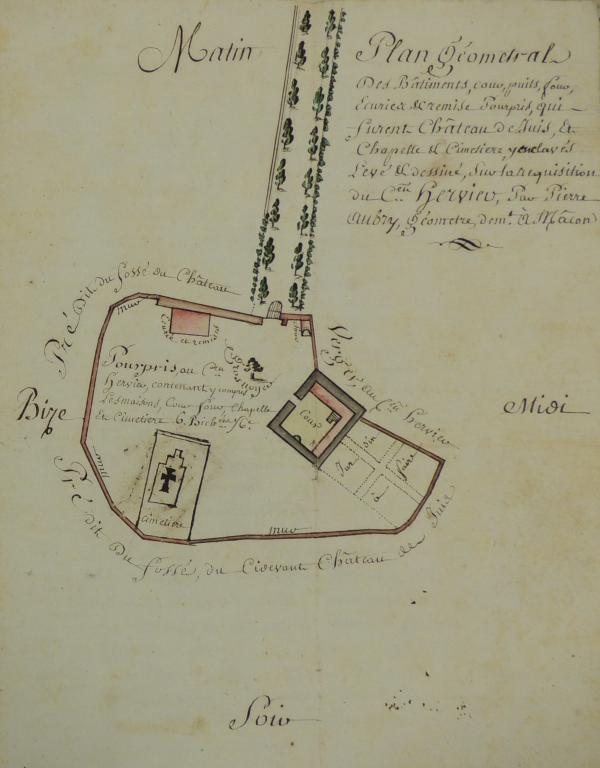 Matin
Plan Géometral
Des Bâtiments, cour, puits, four,
Ecuries & remise Pourpris, qui
furent Château de Juis, Et
Chapelle & Cimetiere, y enclavés
Levé & dessiné, Sur la requisition
du C.en Hervier, Par Pierre
Aubry, géometre, dem.t à Mâcon
Pré Dit du fossé du Château
mur
Ecurie et remises
mur
Gros noyer
Pourpris, au C.en
Hervier, contenant y compris
Les maisons, Cour four, Chapelle
Et Cimetiere 6. Bich.
Verger, au C.en Hervier
Cour
Bize
Midi
Jardin à faire
mur
Cimetiere
mur
Pré Dit Du fossé, du Cidevant Château de Juis
Soir